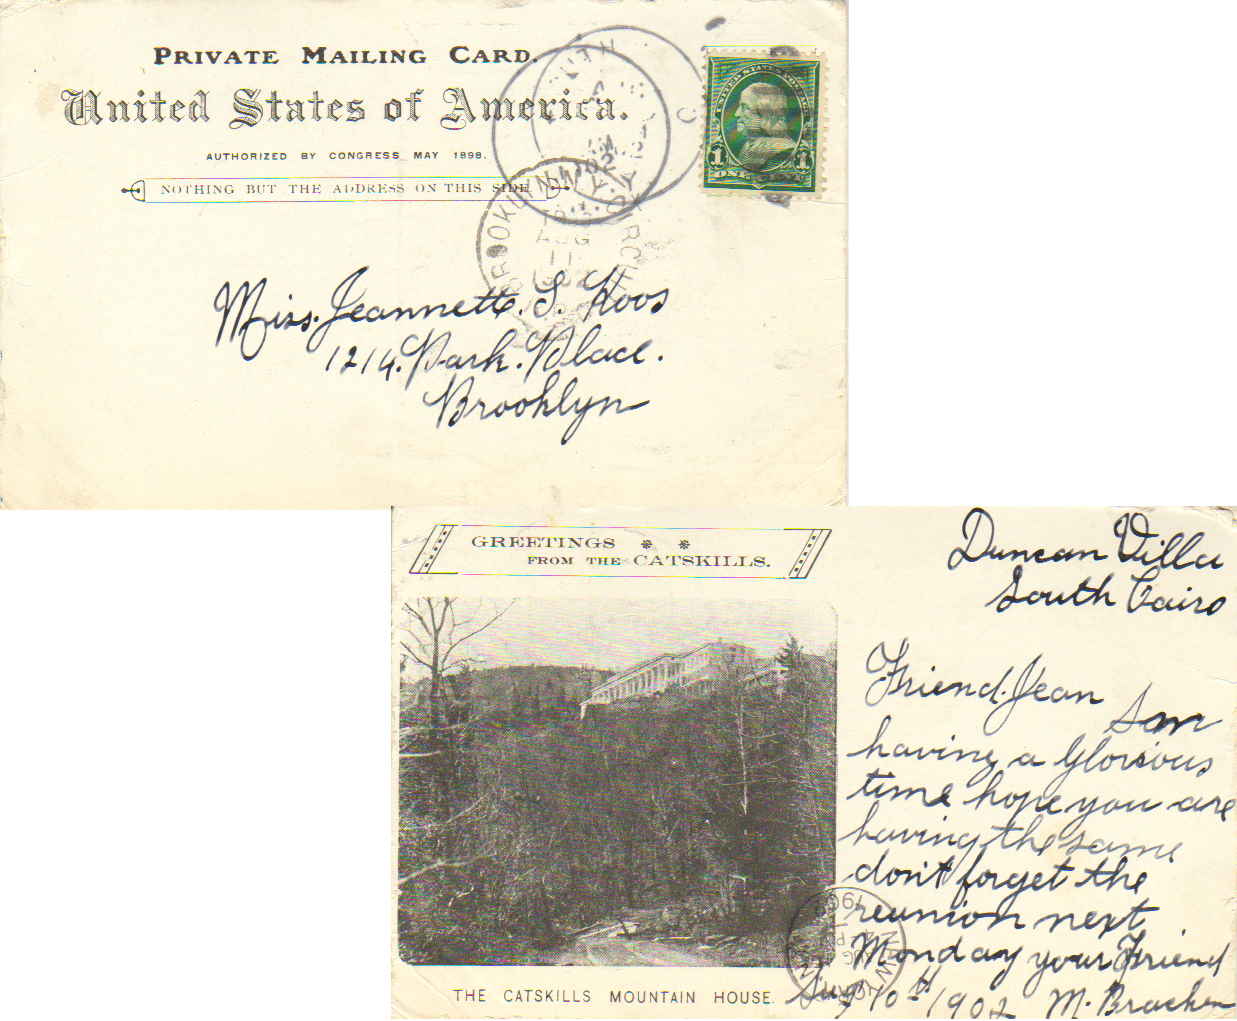 PRIVATE MAILING CARD.
United States of America.
AUTHORIZED BY CONGRESS MAY 1898.
NOTHING BUT THE ADDRESS ON THIS SIDE.
UNITED STATES POSTAGE
1 1
ONE
SOUTH
AM
02
N.Y.
BROOKLYN
AUG
11
Miss. Jeannette. S. Koos
1214. Park. Place.
Brooklyn
GREETINGS
FROM THE CATSKILLS.
Duncan Villa
South Cairo
Friend. Jean
Am
having a Glorious
time hope you are
having the same
don't forget the
reunion next
Monday your Friend
Aug 10th 1902 M. Bracken
NEW YORK
190
THE CATSKILLS MOUNTAIN HOUSE.